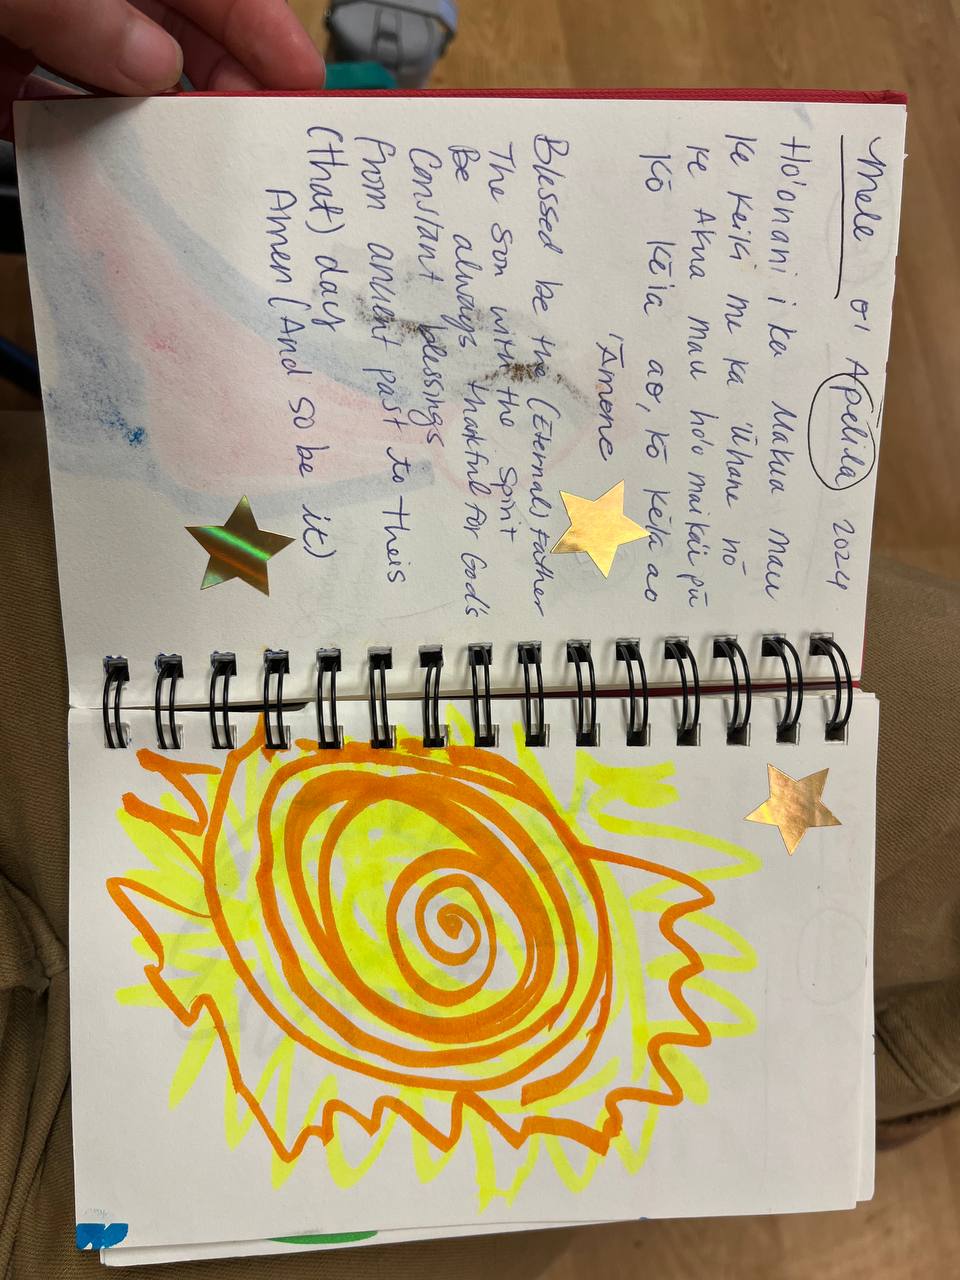 Mele o' Apelila 2024
Ho'onani i ka Makua mau
Ke keiki me ka 'Uhane nō
Ke Akua mau ho'o maika'i pū
Kō kēia ao, kō kēla ao
'Āmene
Blessed be the (Eternal) Father
The Son with the Spirit
Be always thankful for God's
Constant blessings
From anient past to theis
(that) day
Amen (And so be it)